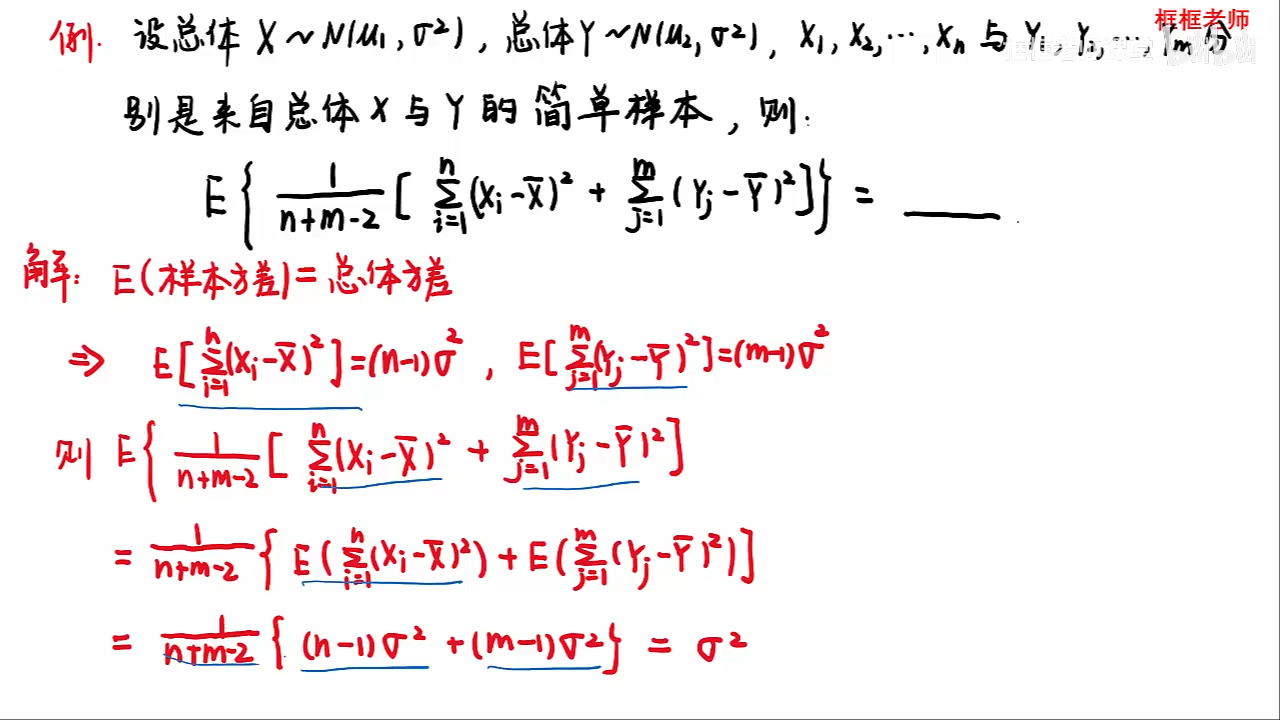 框框老师
例. 设总体 X ~ N(μ₁, σ²), 总体 Y ~ N(μ₂, σ²), X₁, X₂, ⋯, Xₙ 与 Y₁, Y₂, ⋯, Yₘ 分
别是来自总体 X 与 Y 的简单样本, 则:
E{ 1/(n+m-2) [ ∑_{i=1}^{n} (Xᵢ - X̄)² + ∑_{j=1}^{m} (Yⱼ - Ȳ)² ] } = ____ .
解: E(样本方差) = 总体方差
⇒ E[ ∑_{i=1}^{n} (Xᵢ - X̄)² ] = (n-1)σ² , E[ ∑_{j=1}^{m} (Yⱼ - Ȳ)² ] = (m-1)σ²
则 E{ 1/(n+m-2) [ ∑_{i=1}^{n} (Xᵢ - X̄)² + ∑_{j=1}^{m} (Yⱼ - Ȳ)² ]
= 1/(n+m-2) { E( ∑_{i=1}^{n} (Xᵢ - X̄)² ) + E( ∑_{j=1}^{m} (Yⱼ - Ȳ)² ) ]
= 1/(n+m-2) { (n-1)σ² + (m-1)σ² } = σ²